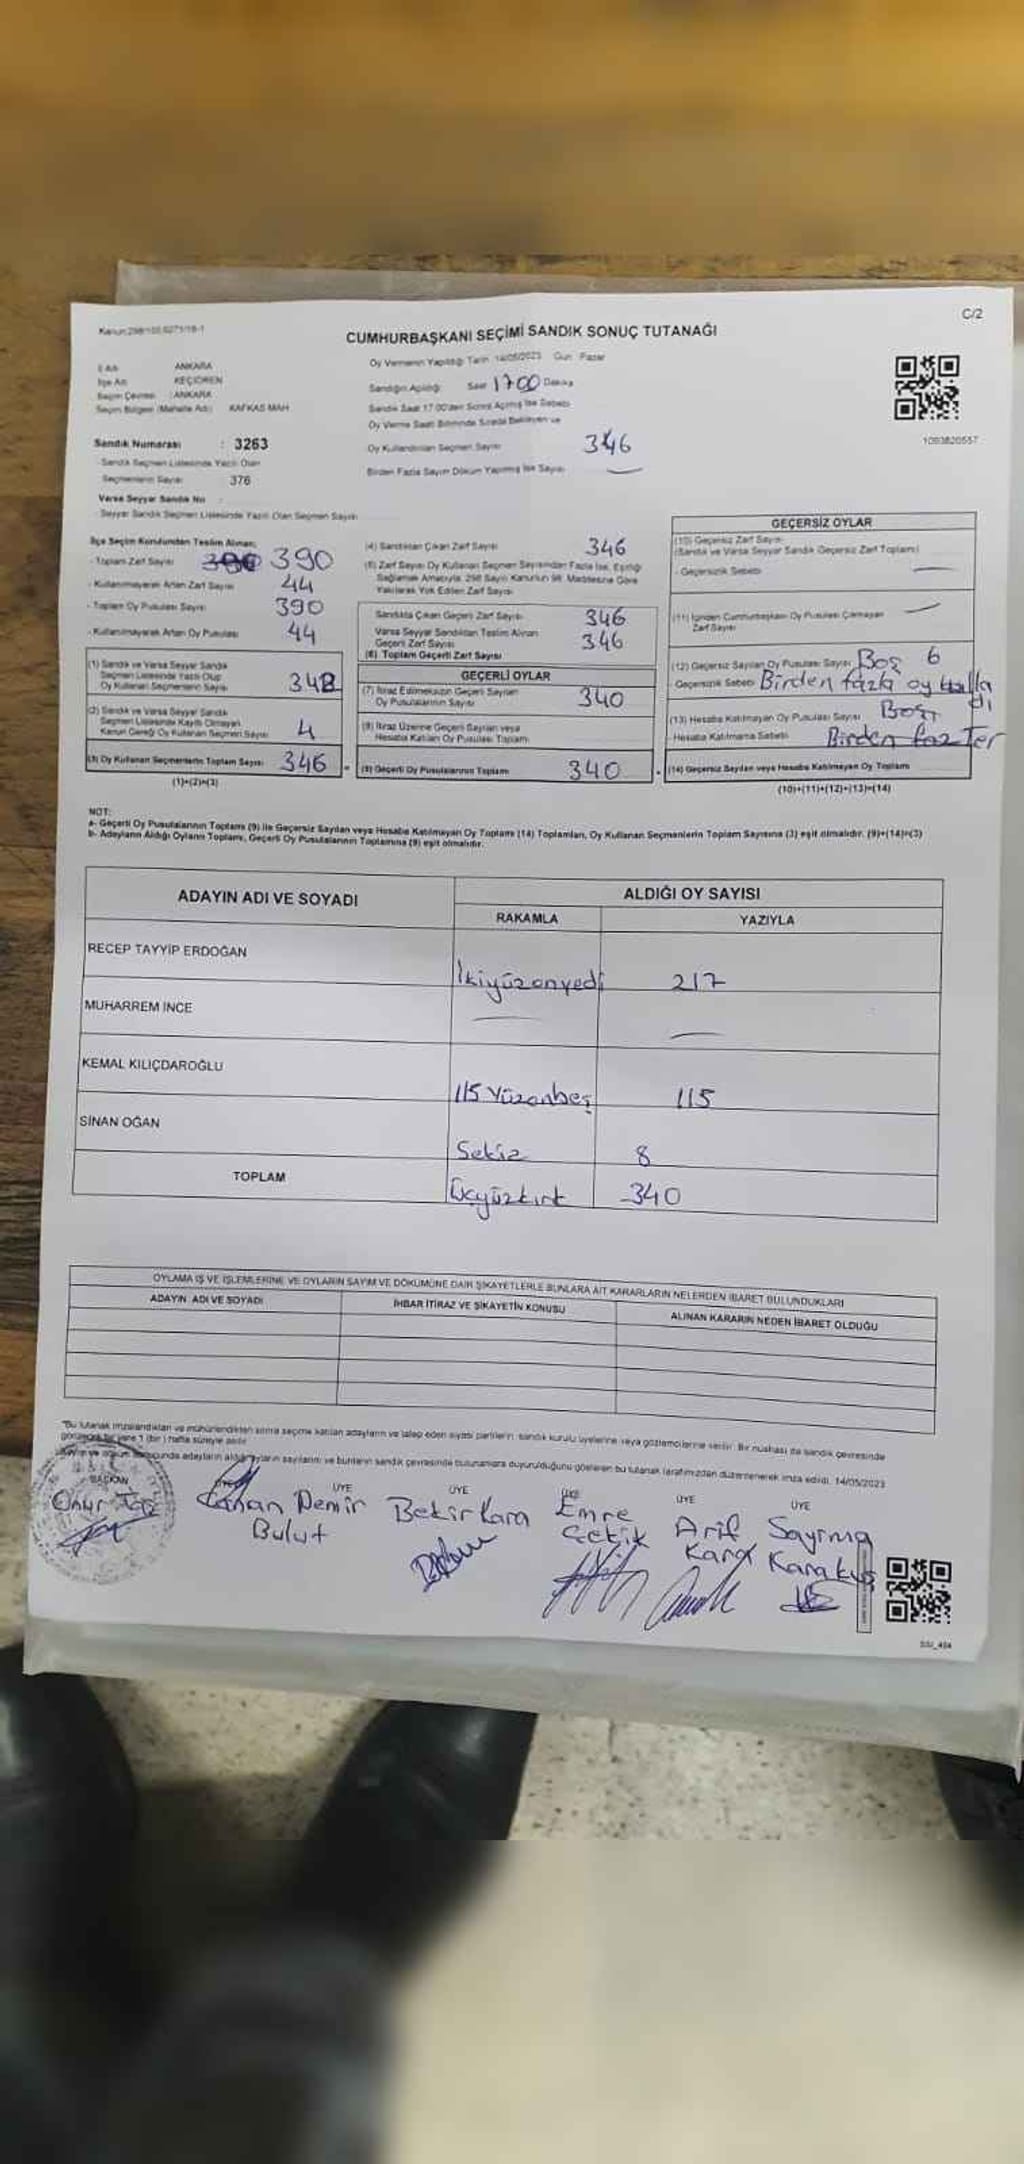 C/2
CUMHURBAŞKANI SEÇİMİ SANDIK SONUÇ TUTANAĞI
İl Adı ANKARA
İlçe Adı KEÇİÖREN
Seçim Çevresi : ANKARA
Seçim Bölgesi (Mahalle Adı) KAFKAS MAH
Sandık Numarası : 3263
Sandık Seçmen Listesinde Yazılı Olan
Seçmenlerin Sayısı 376
Varsa Seyyar Sandık No
Seyyar Sandık Seçmen Listesinde Yazılı Olan Seçmen Sayısı
Oy Vermenin Yapıldığı Tarih 14/05/2023 Gün Pazar
Sandığın Açıldığı Saat 17 00 Dakika
Sandık Saat 17.00'den Sonra Açılmış İse Sebebi
Oy Verme Saati Bitiminde Sırada Bekleyen ve
Oy Kullandırılan Seçmen Sayısı 346
Birden Fazla Sayım Döküm Yapılmış İse Sayısı —
1093820557
İlçe Seçim Kurulundan Teslim Alınan;
- Toplam Zarf Sayısı 390
- Kullanılmayarak Artan Zarf Sayısı 44
- Toplam Oy Pusulası Sayısı 390
- Kullanılmayarak Artan Oy Pusulası 44
(1) Sandık ve Varsa Seyyar Sandık
Seçmen Listesinde Yazılı Olup
Oy Kullanan Seçmenlerin Sayısı 342
(2) Sandık ve Varsa Seyyar Sandık
Seçmen Listesinde Kayıtlı Olmayan
Kanun Gereği Oy Kullanan Seçmen Sayısı 4
(3) Oy Kullanan Seçmenlerin Toplam Sayısı 346
(1)+(2)=(3)
(4) Sandıktan Çıkan Zarf Sayısı 346
(5) Zarf Sayısı Oy Kullanan Seçmen Sayısından Fazla İse, Eşitliği
Sağlamak Amacıyla, 298 Sayılı Kanunun 98. Maddesine Göre
Yakılarak Yok Edilen Zarf Sayısı
Sandıkta Çıkan Geçerli Zarf Sayısı 346
Varsa Seyyar Sandıktan Teslim Alınan
Geçerli Zarf Sayısı 346
(6) Toplam Geçerli Zarf Sayısı
GEÇERLİ OYLAR
(7) İtiraz Edilmeksizin Geçerli Sayılan
Oy Pusulalarının Sayısı 340
(8) İtiraz Üzerine Geçerli Sayılan veya
Hesaba Katılan Oy Pusulası Toplamı
(9) Geçerli Oy Pusulalarının Toplamı 340
GEÇERSİZ OYLAR
(10) Geçersiz Zarf Sayısı
(Sandık ve Varsa Seyyar Sandık Geçersiz Zarf Toplamı)
- Geçersizlik Sebebi —
(11) İçinden Cumhurbaşkanı Oy Pusulası Çıkmayan
Zarf Sayısı —
(12) Geçersiz Sayılan Oy Pusulası Sayısı Boş 6
- Geçersizlik Sebebi Birden fazla oy kulla
dı
(13) Hesaba Katılmayan Oy Pusulası Sayısı Boş,
- Hesaba Katılmama Sebebi
(14) Geçersiz Sayılan veya Hesaba Katılmayan Oy Toplamı
(10)+(11)+(12)+(13)=(14)
NOT:
a- Geçerli Oy Pusulalarının Toplamı (9) ile Geçersiz Sayılan veya Hesaba Katılmayan Oy Toplamı (14) Toplamları, Oy Kullanan Seçmenlerin Toplam Sayısına (3) eşit olmalıdır. (9)+(14)=(3)
b- Adayların Aldığı Oyların Toplamı, Geçerli Oy Pusulalarının Toplamına (9) eşit olmalıdır.
ADAYIN ADI VE SOYADI
ALDIĞI OY SAYISI
RAKAMLA YAZIYLA
RECEP TAYYİP ERDOĞAN İkiyüzonyedi 217
MUHARREM İNCE — —
KEMAL KILIÇDAROĞLU 115 Yüzonbeş 115
SİNAN OĞAN Sekiz 8
TOPLAM Üçyüzkırk 340
OYLAMA İŞ VE İŞLEMLERİNE VE OYLARIN SAYIM VE DÖKÜMÜNE DAİR ŞİKAYETLERLE BUNLARA AİT KARARLARIN NELERDEN İBARET BULUNDUKLARI
ADAYIN ADI VE SOYADI İHBAR İTİRAZ VE ŞİKAYETİN KONUSU ALINAN KARARIN NEDEN İBARET OLDUĞU
"Bu tutanak imzalandıktan ve mühürlendikten sonra seçime katılan adayların ve talep eden siyasi partilerin sandık kurulu üyelerine veya gözlemcilerine verilir. Bir nüshası da sandık çevresinde
görülecek bir yere 1 (bir) hafta süreyle asılır
adayların aldığı oyların sayılarını ve bunların sandık çevresinde bulunanlara duyurulduğunu gösteren bu tutanak tarafımızdan düzenlenerek imza edildi. 14/05/2023
BAŞKAN ÜYE ÜYE ÜYE ÜYE ÜYE
Onur
Canan Demir
Bulut
Bekir Kara
Emre
Arif
Kara
Sayrıma
Karakuş